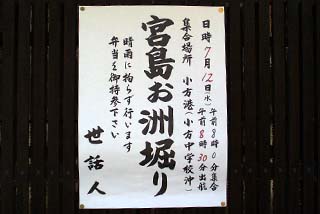 日時 7月12日(水) 午前8時0分集合
午前8時30分出航
集合場所 小方港(小方中学校沖)
宮島お洲堀り
晴雨に拘らず行います
弁当を御持参下さい
世話人